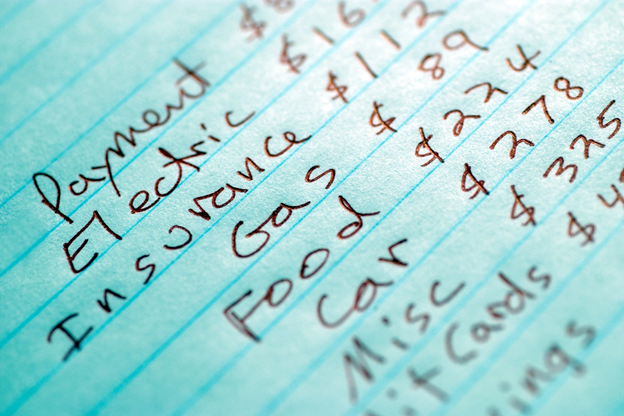 Payment
Electric
Insurance $112
Gas $89
Food $224
Car $278
Misc $325
Cards